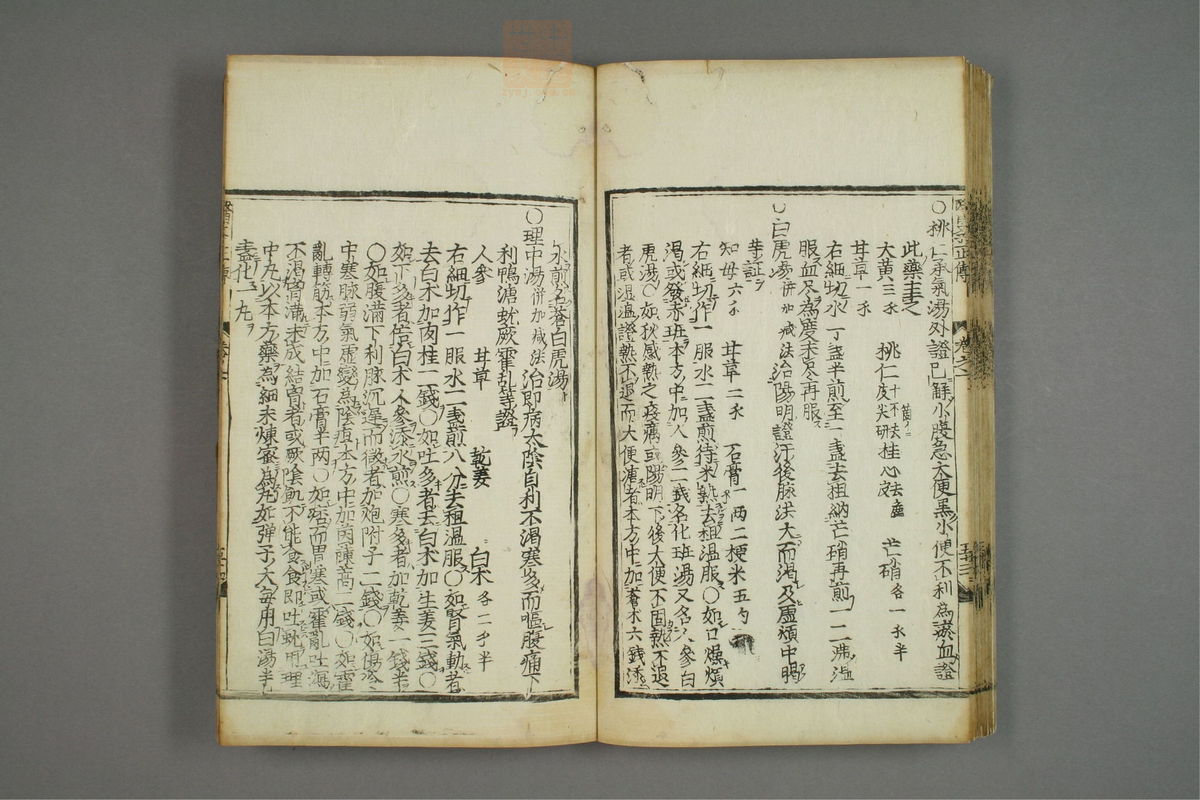 ○桃仁承氣湯外證已解小腹急大便黑小便不利為瘀血證
此藥主之
大黃三水 桃仁十箇不去皮尖研 桂心去皮 芒硝各一水半
甘草一水
右細切水一丁盞半煎至一盞去柤納芒硝再煎一二沸溫
服血尽為度未尽再服
○白虎湯併加減法治陽明證汗後脉洪大而渴及虛煩中暍
等証
知母六水 甘草二水 石膏一两二 粳米五勺
右細切作一服水二盞煎待米熟去柤溫服○如口燥煩
渴或發赤班本方中加人參二錢名化班湯又名人參白
虎湯○如秋感熱之疫癘或陽明下後大便不固熱不退
者或溫瘧證熱不退而大便溏者本方中加蒼朮六錢添
水煎名蒼白虎湯
○理中湯併加減法治即病太陰自利不渴寒多而嘔腹痛下
利鴨溏蚘厥霍乱等證
人參 甘草 乾姜 白朮各二水半
右細切作一服水二盞煎八分去柤溫服○如腎氣動者
去白朮加肉桂二錢○如吐多者去白朮加生姜三錢○
如下多者倍白朮人參添水煎○寒多者加乾姜一錢半
○如腹滿下利脉沉遲而微者加炮附子二錢○如傷冷
中寒脉弱氣虛變為陰疸本方中加茵蔯蒿二錢○如霍
亂轉筋本方中加石膏半两○如痞而胃寒或霍亂吐瀉
不渴胃滿未成結胷者或厥陰飢不能食食即吐蚘用理
中丸以本方藥為細末煉蜜為丸如弾子大每用白湯半
盞化一丸